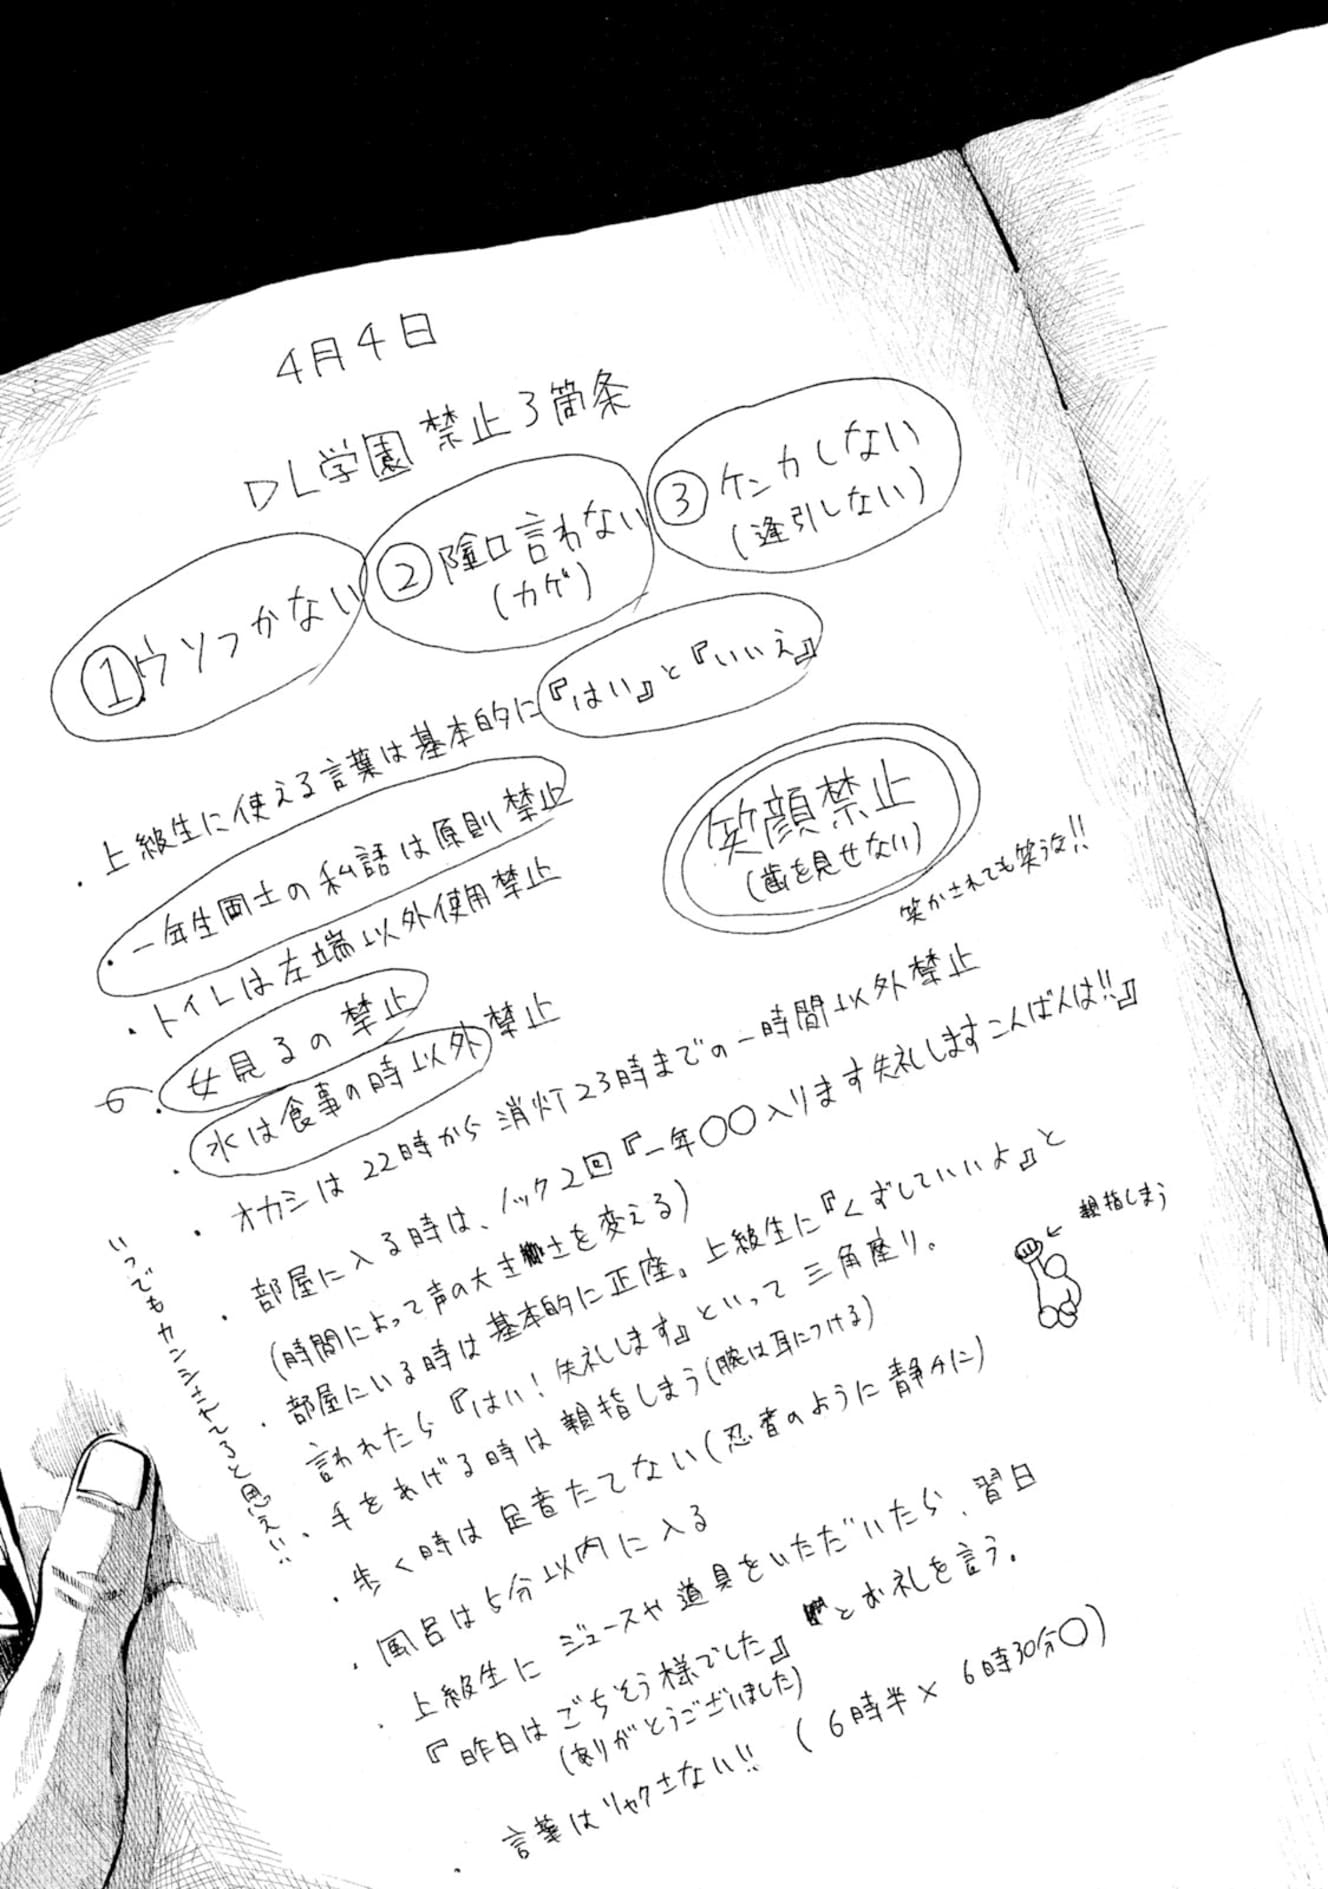 4月4日
DL学園 禁止3箇条
①ウソつかない
②陰口言わない
(カゲ)
③ケンカしない
(逢引しない)
・上級生に使える言葉は基本的に『はい』と『いいえ』
・一年生同士の私話は原則禁止
・トイレは左端以外使用禁止
笑顔禁止
(歯を見せない)
笑かされても笑うな!!
・女見るの禁止
・水は食事の時以外禁止
・オカシは22時から消灯23時までの一時間以外禁止
・部屋に入る時は、ノック2回『一年〇〇入ります失礼しますこんばんは!!』
(時間によって声の大きさを変える)
・部屋にいる時は基本的に正座。上級生に『くずしていいよ』と
言われたら『はい!失礼します』といって三角座り。
・手をあげる時は親指しまう(腕は耳につける)
親指しまう
・歩く時は足音たてない(忍者のように静かに)
・風呂は5分以内に入る
・上級生にジュースや道具をいただいたら、翌日
『昨日はごちそう様でした』とお礼を言う。
(ありがとうございました)
・言葉はリャクさない!!(6時半× 6時30分〇)
いつでもカンシされてると思え!!